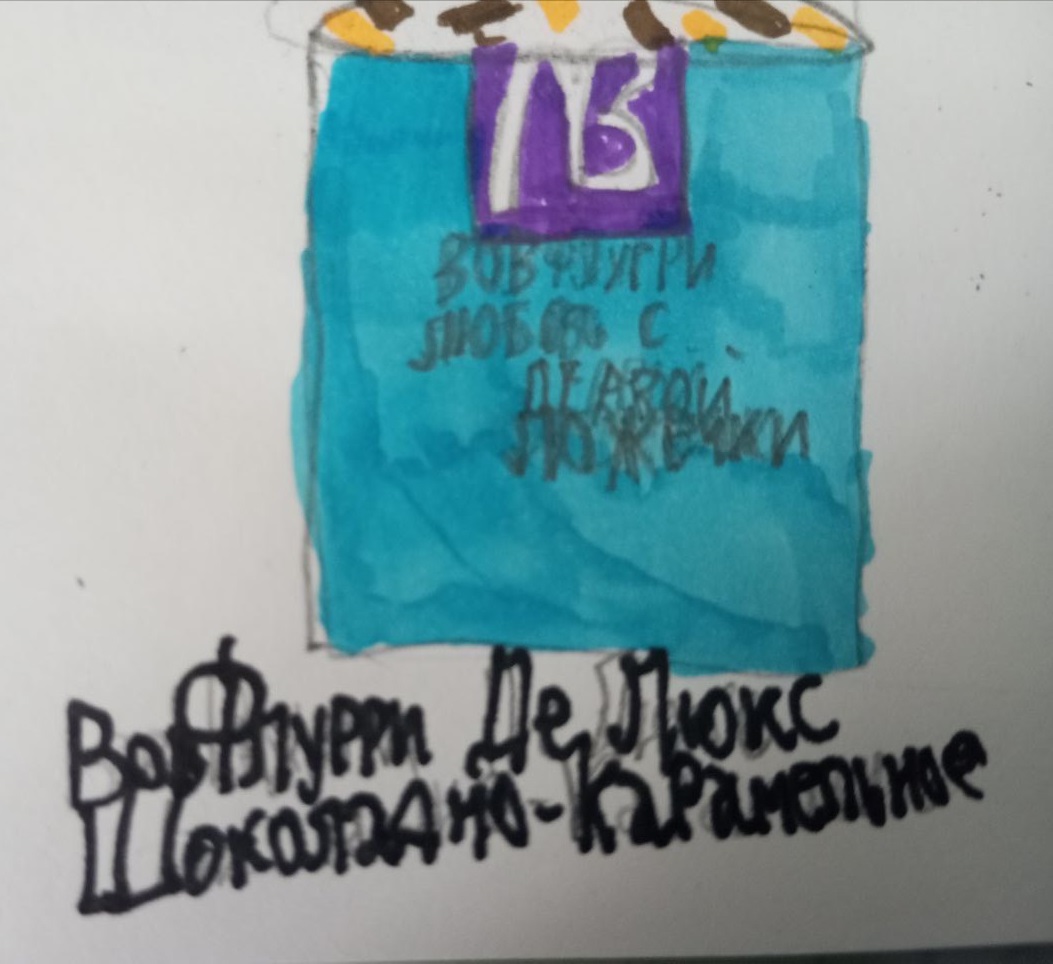 ВОВФЛУРРИ
ЛЮБОВЬ С
ПЕРВОЙ
ЛОЖЕЧКИ
ВовФлурри Де Люкс
Шоколадно-Карамельное